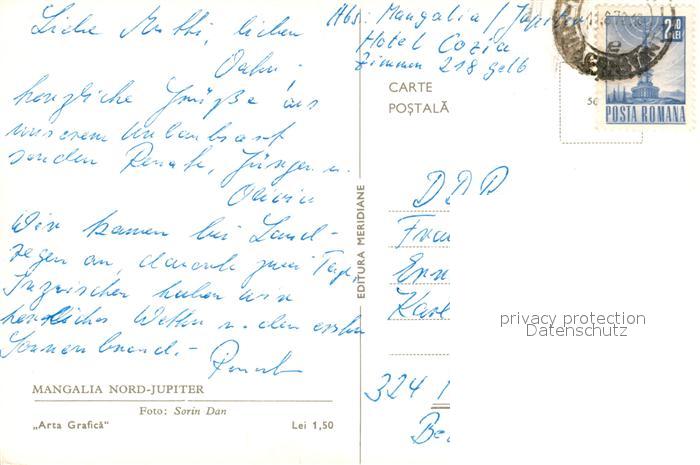 Liebe Mutti, lieber
herzliche Grüße aus
unserem Urlaubsort
senden Renate, Jürgen u.
Wir kamen bei Land-
regen an, danach zwei Tage
Inzwischen haben wir
herrliches Wetter u. den ersten
Sonnenbrand.-
MANGALIA NORD-JUPITER
Foto: Sorin Dan
„Arta Grafică” Lei 1,50
EDITURA MERIDIANE
Abs: Mangalia / Jupiter
Hotel Cozia
Zimmer 218 gelb
CARTE
POŞTALĂ
2,40
LEI
POSTA ROMANA
DDR
324
privacy protection
Datenschutz